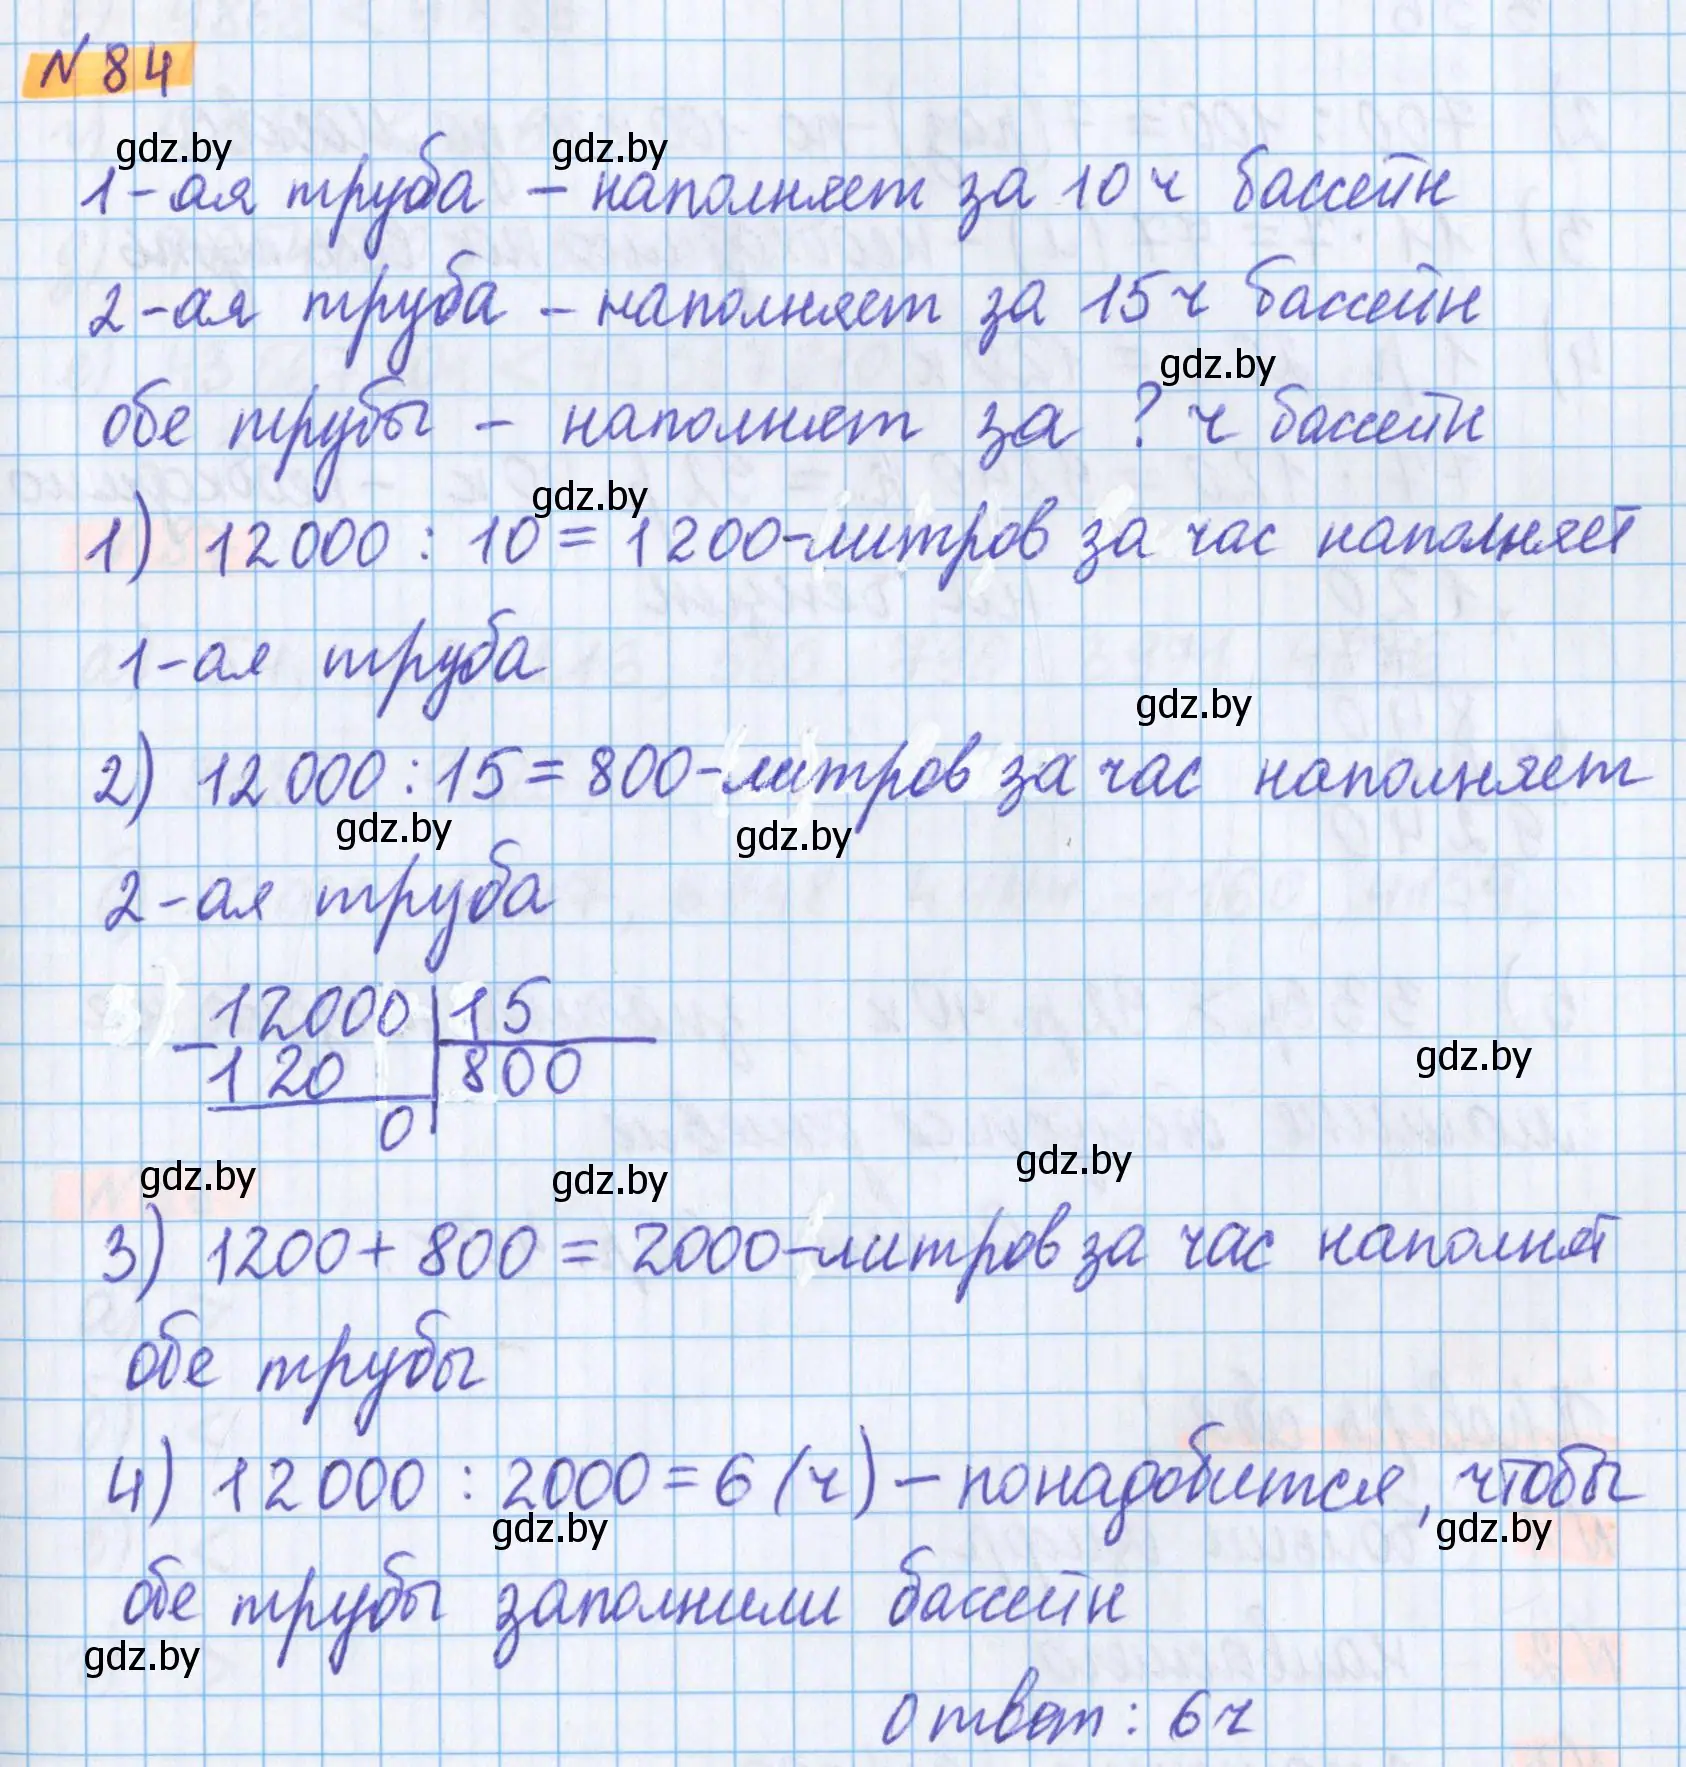 N 84
gdz.by gdz.by
1-ая труба – наполняет за 10 ч бассейн
2-ая труба – наполняет за 15 ч бассейн
gdz.by
обе трубы – наполнят за ? ч бассейн
gdz.by
1) 12000 : 10 = 1200-литров за час наполняет
1-ая труба
gdz.by
2) 12000 : 15 = 800-литров за час наполняет
gdz.by gdz.by
2-ая труба
12000 15
gdz.by
– 120 800
0
gdz.by gdz.by gdz.by
3) 1200 + 800 = 2000-литров за час наполнят
обе трубы
4) 12000 : 2000 = 6 (ч) – понадобится, чтобы
gdz.by gdz.by
обе трубы заполнили бассейн
gdz.by
ответ: 6 ч